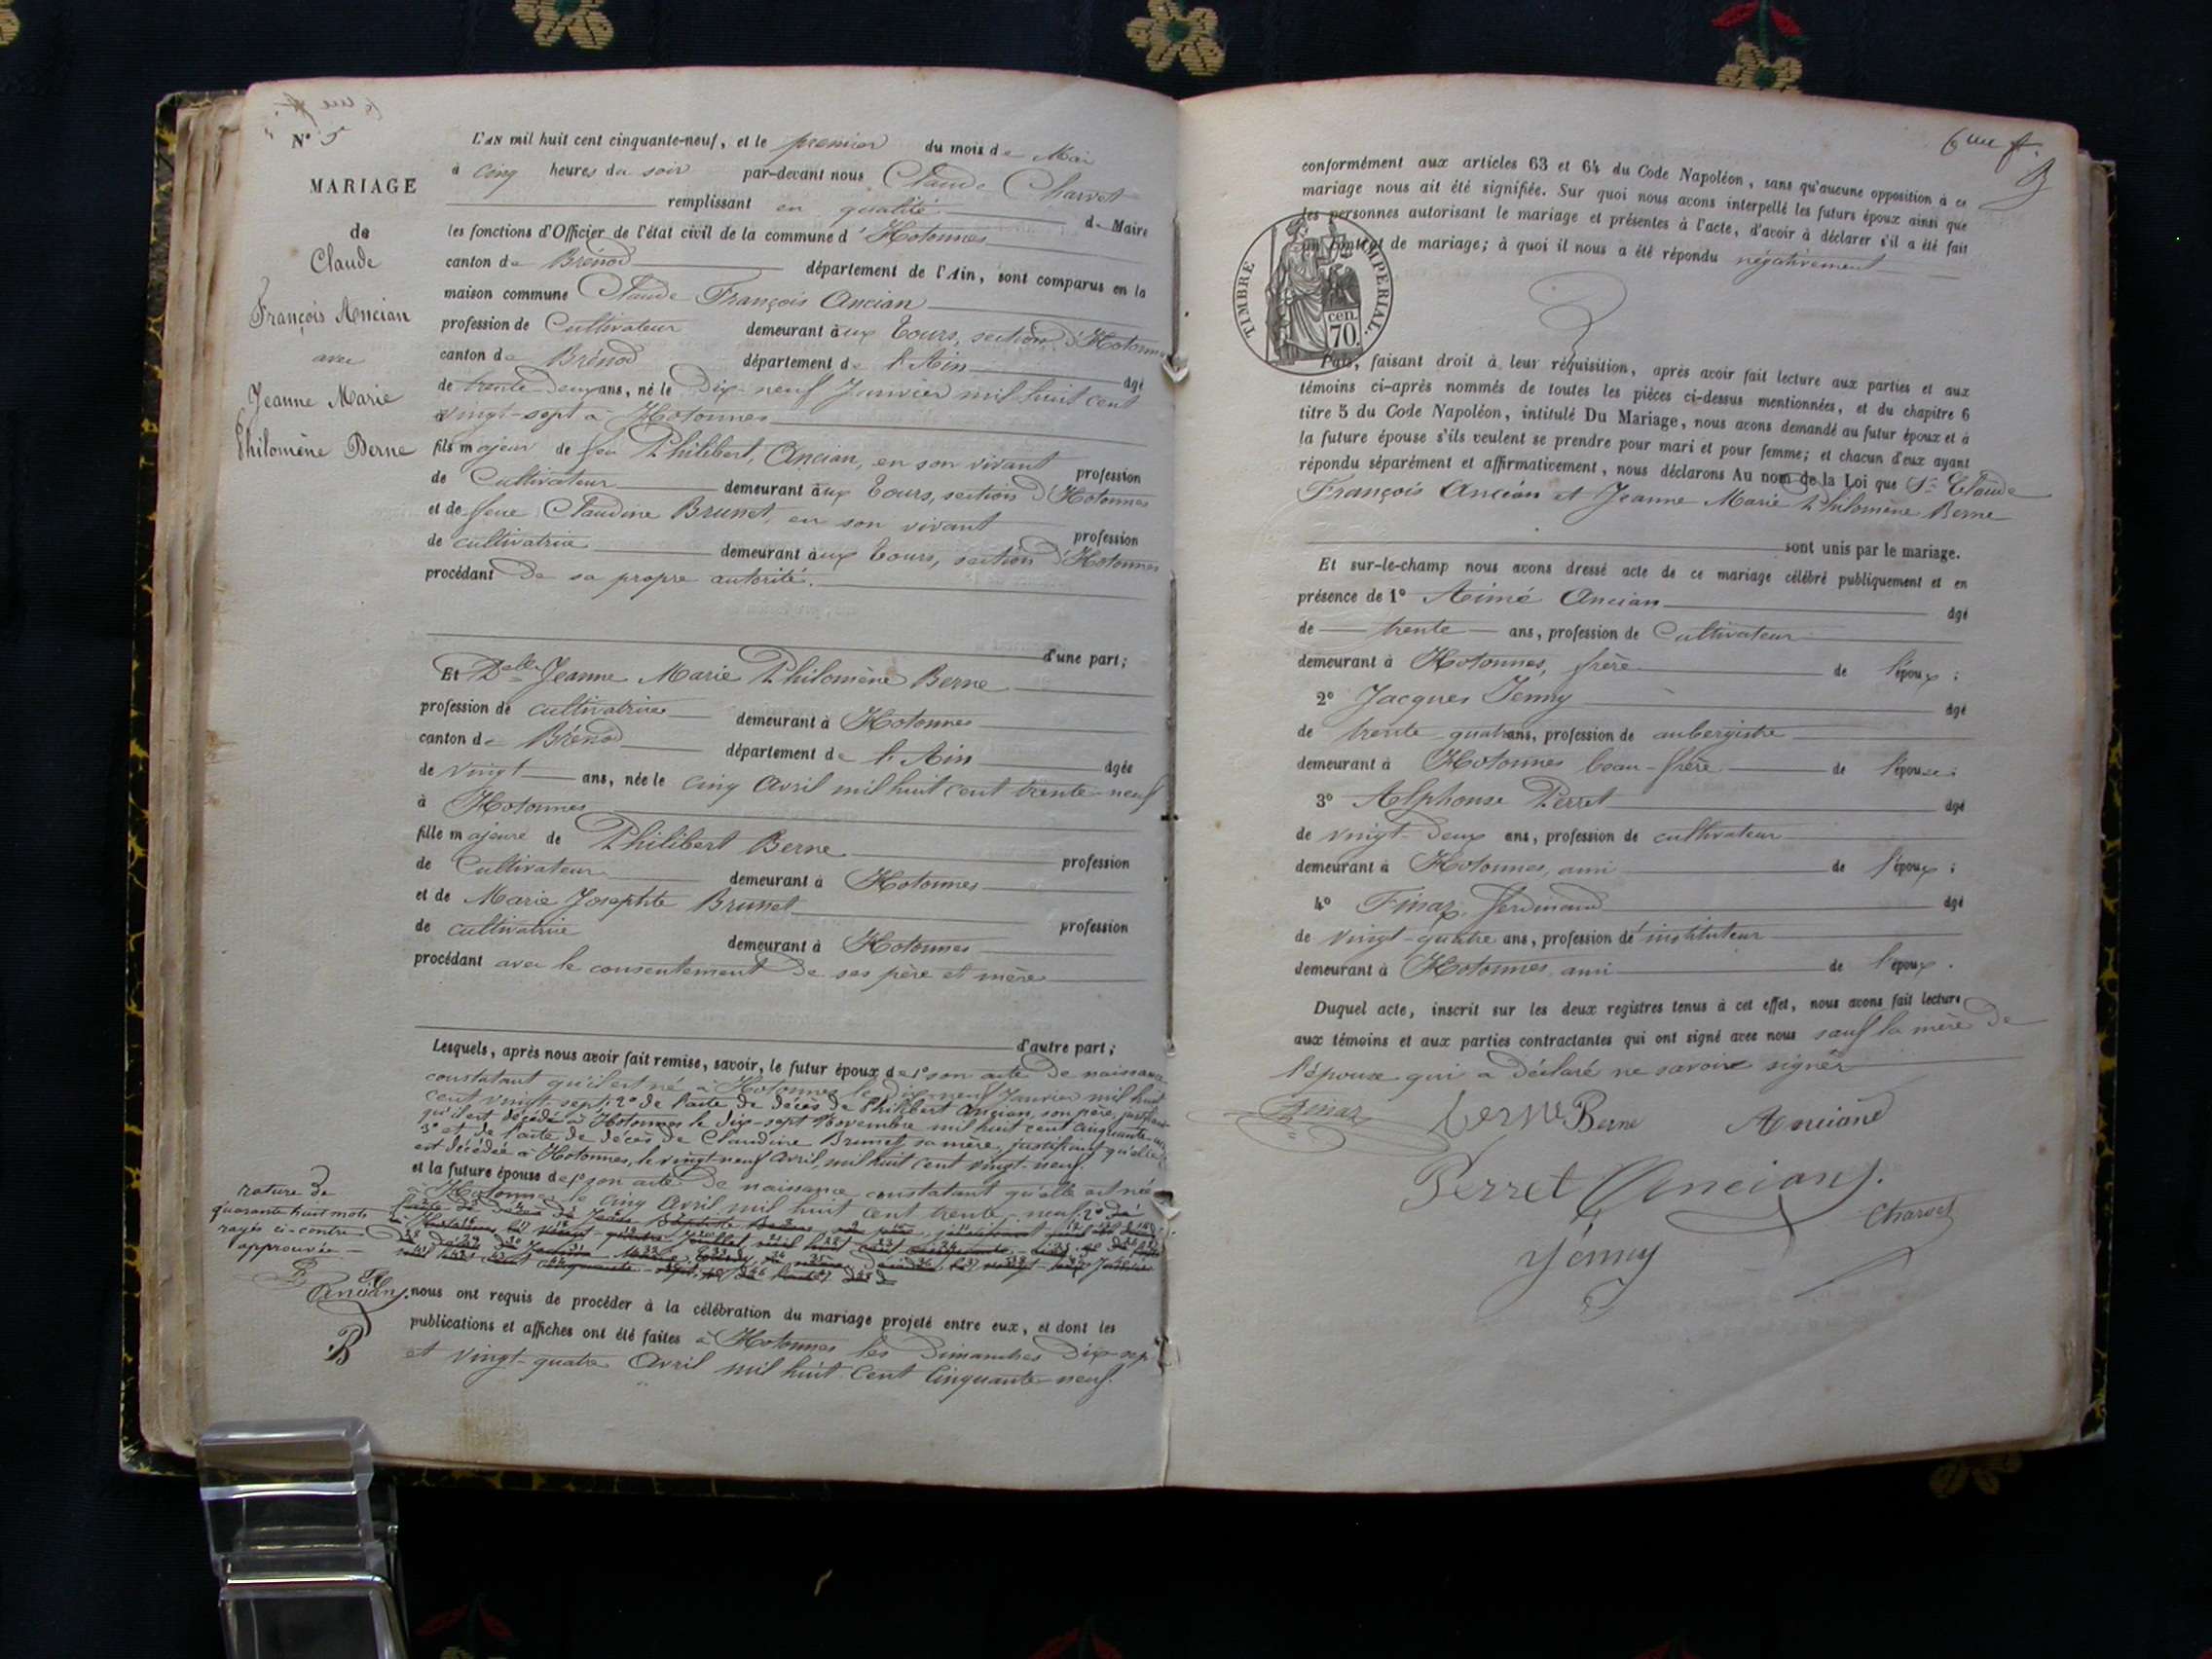 N° 5
MARIAGE
de
Claude
François Ancian
avec
Jeanne Marie
Philomène Berne
L'AN mil huit cent cinquante-neuf, et le premier du mois de Mai
à cinq heures du soir par-devant nous Claude Charvet
remplissant en qualité de Maire
les fonctions d'Officier de l'état civil de la commune d'Hotonnes
canton de Brénod département de l'Ain, sont comparus en la
maison commune Claude François Ancian
profession de Cultivateur demeurant aux Tours, section d'Hotonnes
canton de Brénod département de l'Ain âgé
de trente-deux ans, né le Dix-neuf Janvier mil huit cent
vingt-sept à Hotonnes
fils majeur de feu Philibert, Ancian, en son vivant profession
de Cultivateur demeurant aux Tours, section d'Hotonnes
et de feue Claudine Brunet, en son vivant profession
de cultivatrice demeurant aux Tours, section d'Hotonnes
procédant de sa propre autorité.
d'une part;
Et Delle Jeanne Marie Philomène Berne
profession de cultivatrice demeurant à Hotonnes
canton de Brénod département de l'Ain âgée
de vingt ans, née le cinq Avril mil huit cent trente-neuf
à Hotonnes
fille majeure de Philibert Berne profession
de Cultivateur demeurant à Hotonnes
et de Marie Josephte Brunet profession
de cultivatrice demeurant à Hotonnes
procédant avec le consentement de ses père et mère
d'autre part;
Lesquels, après nous avoir fait remise, savoir, le futur époux de 1° son acte de naissance
constatant qu'il est né à Hotonnes le dix-neuf Janvier mil huit
cent vingt-sept; 2° de l'acte de décès de Philibert Ancian, son père, justifiant
qu'il est décédé à Hotonnes le dix-sept Novembre mil huit cent cinquante
3° et de l'acte de décès de Claudine Brunet sa mère, justifiant qu'elle
est décédée à Hotonnes, le vingt-neuf Avril, mil huit cent vingt-neuf.
et la future épouse de 1° son acte de naissance constatant qu'elle est née
à Hotonnes le cinq Avril mil huit cent trente-neuf; 2° de
rature de
quarante huit mots
rayés ci-contre
approuvée
nous ont requis de procéder à la célébration du mariage projeté entre eux, et dont les
publications et affiches ont été faites à Hotonnes les Dimanches dix-sept
et vingt-quatre Avril mil huit cent cinquante-neuf.
6me f.
conformément aux articles 63 et 64 du Code Napoléon, sans qu'aucune opposition à ce
mariage nous ait été signifiée. Sur quoi nous avons interpellé les futurs époux ainsi que
les personnes autorisant le mariage et présentes à l'acte, d'avoir à déclarer s'il a été fait
un contrat de mariage; à quoi il nous a été répondu négativement
TIMBRE IMPERIAL.
cen.
70.
Puis, faisant droit à leur réquisition, après avoir fait lecture aux parties et aux
témoins ci-après nommés de toutes les pièces ci-dessus mentionnées, et du chapitre 6
titre 5 du Code Napoléon, intitulé Du Mariage, nous avons demandé au futur époux et à
la future épouse s'ils veulent se prendre pour mari et pour femme; et chacun d'eux ayant
répondu séparément et affirmativement, nous déclarons Au nom de la Loi que Sr Claude
François Ancian et Jeanne Marie Philomène Berne
sont unis par le mariage.
Et sur-le-champ nous avons dressé acte de ce mariage célébré publiquement et en
présence de 1° Aimé Ancian âgé
de trente ans, profession de Cultivateur
demeurant à Hotonnes, frère de l'époux;
2° Jacques Jenny âgé
de trente-quatre ans, profession de aubergiste
demeurant à Hotonnes beau-frère de l'épouse;
3° Alphonse Perret âgé
de vingt-deux ans, profession de cultivateur
demeurant à Hotonnes, ami de l'époux;
4° Finaz, Ferdinand âgé
de vingt-quatre ans, profession d'instituteur
demeurant à Hotonnes, ami de l'époux.
Duquel acte, inscrit sur les deux registres tenus à cet effet, nous avons fait lecture
aux témoins et aux parties contractantes qui ont signé avec nous sauf la mère de
l'épouse qui a déclaré ne savoir signer
Finaz Berne Berne Anciané
Perret Ancian
Charvet
Jenny